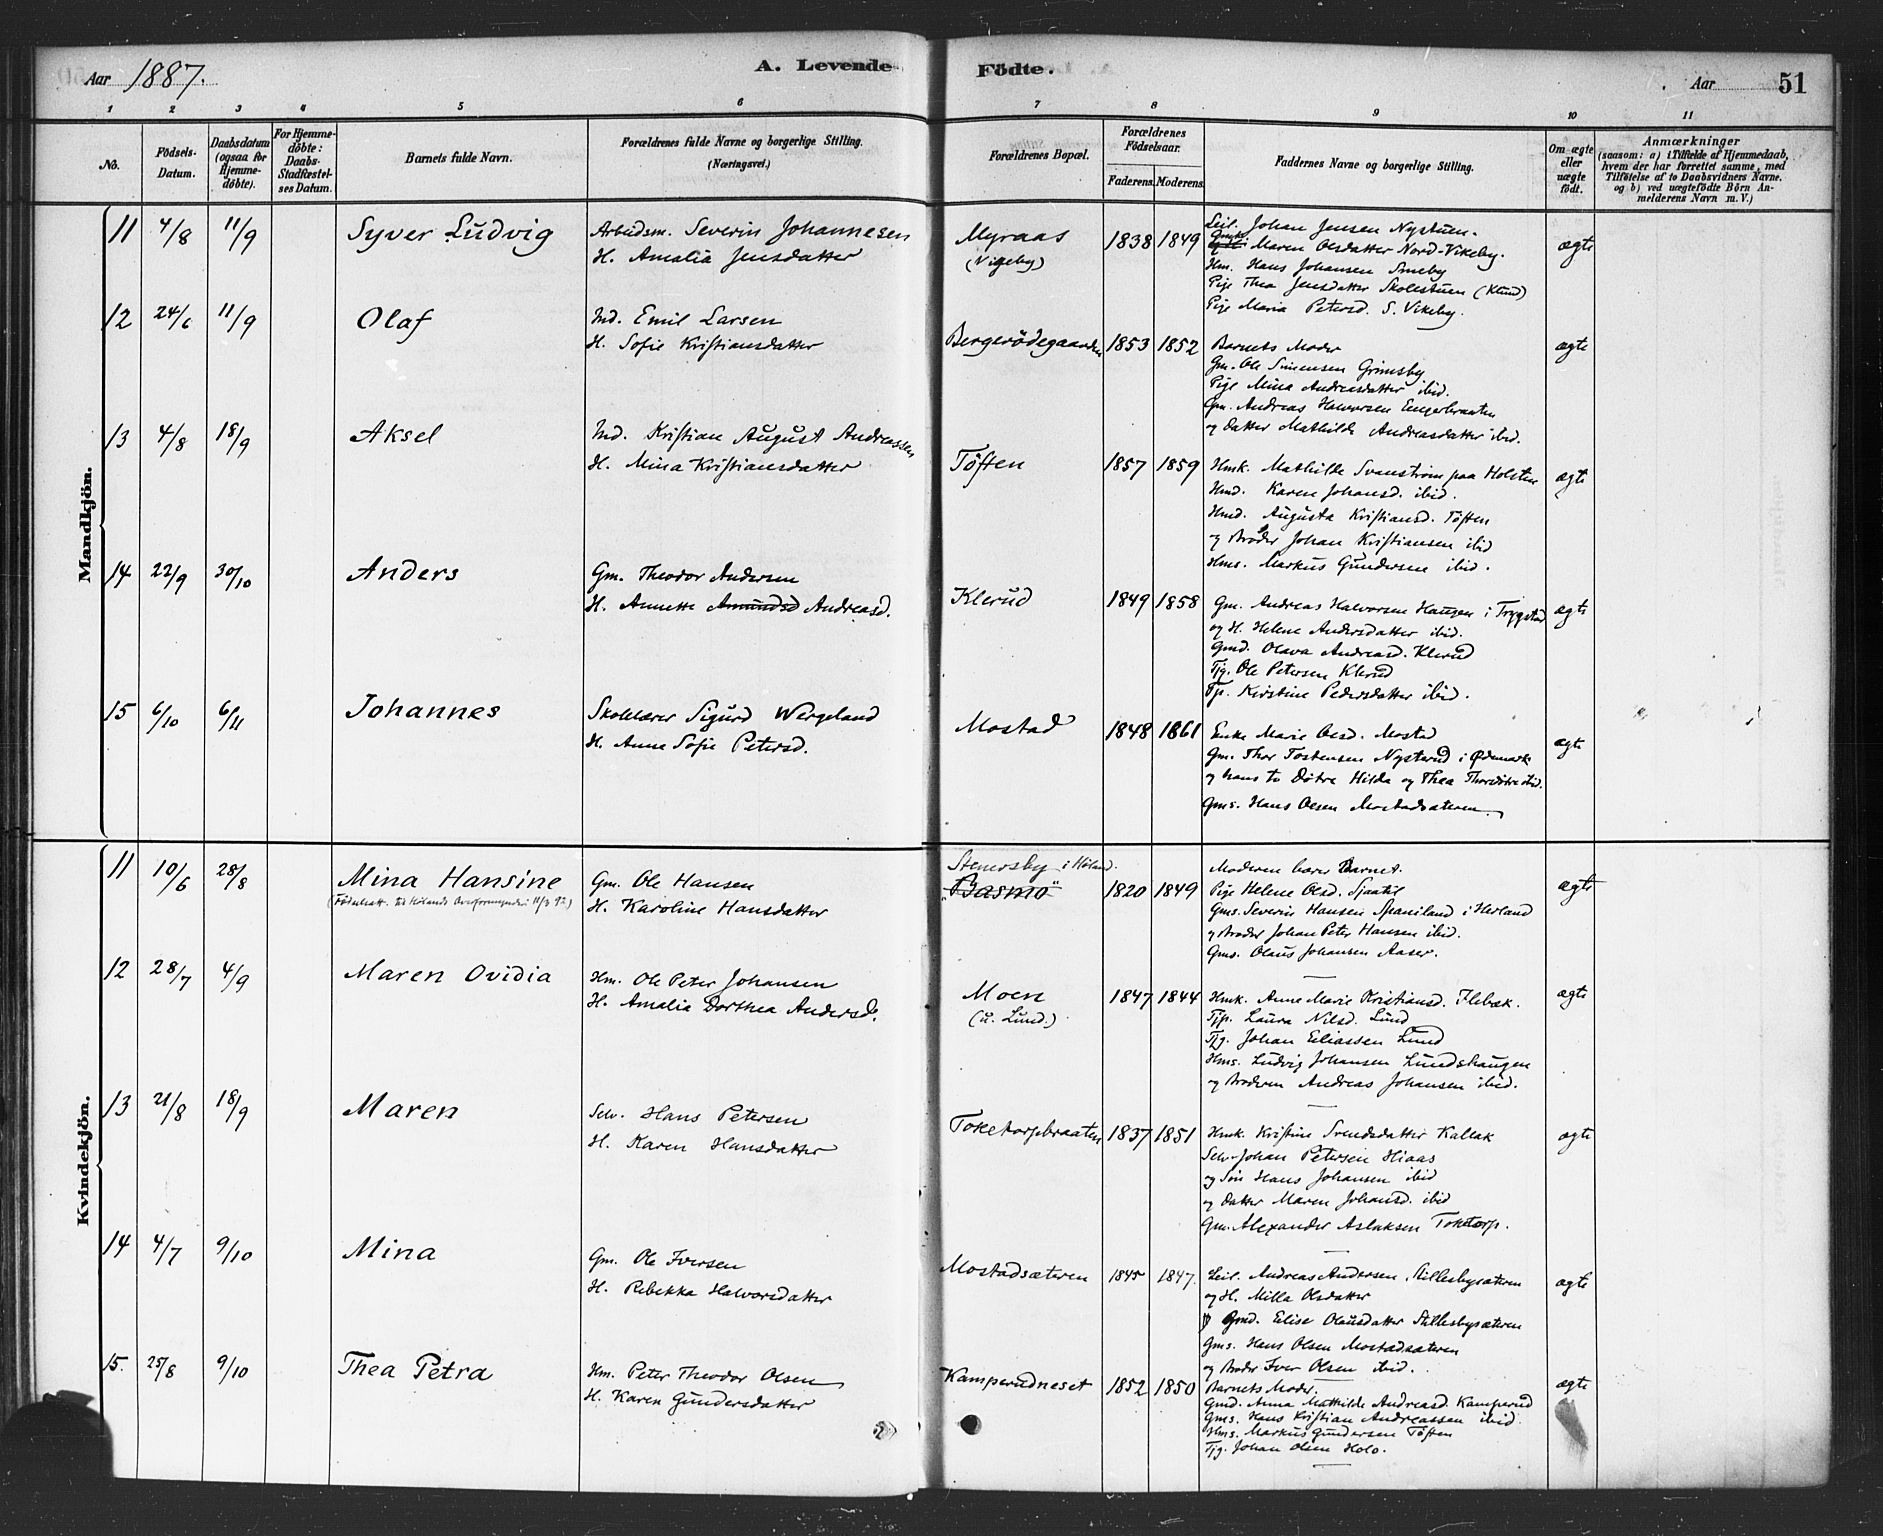 Aar 1887.
A. Levende Födte.
Aar
51
1 2 3 4 5 6 7 8 9 10 11
No.
Födsels-Datum.
Daabsdatum (ogsaa for Hjemme-döbte).
For Hjemme-döbte: Daabs-Stadfæstel-ses Datum.
Barnets fulde Navn.
Forældrenes fulde Navne og borgerlige Stilling. (Næringsvei.)
Forældrenes Bopæl.
Forældrenes Födselsaar.
Faderens. Moderens.
Faddernes Navne og borgerlige Stilling.
Om ægte eller uægte födt.
Anmærkninger
(saasom: a) i Tilfælde af Hjemmedaab, hvem der har forrettet samme, med Tilföielse af to Daabsvidners Navne, og b) ved uægtefödte Börn An-melderens Navn m. V.)
Mandkjön.
11 4/8 11/9 Syver Ludvig
Arbeidsm. Severin Johannesen
H. Amalia Jensdatter
Myraas (Vigeby) 1838 1849
Leil. Johan Jensen Nystuen.
Maren Olsdatter Nord-Vikeby.
Hm. Hans Johansen Smeby
Pige Thea Jensdatter Skolestuen
Pige Maria Petersd. S. Vikeby.
ægte
12 24/6 11/9 Olaf
Ind. Emil Larsen
H. Sofie Kristiansdatter
Bergerödegaarden 1853 1852
Barnets Moder
Gm. Ole Simensen Grimsby
Pige Mina Andreasdatter ibid.
Gm. Andreas Halvorsen Engerbraaten
og Datter Mathilde Andreasdatter ibid.
ægte
13 4/8 18/9 Aksel
Ind. Kristian August Andreassen
H. Mina Kristiansdatter
Töften 1857 1859
Hmk. Mathilde Svanström paa Holsten
Hmd. Karen Johansd. ibid.
Hmd. Augusta Kristiansd. Töften
og Broder Johan Kristiansen ibid
Hms. Markus Gundersen ibid.
ægte
14 22/9 30/10 Anders
Gm. Theodor Andersen
H. Annette Amundsd Andreasd.
Klerud 1849 1858
Gm. Andreas Halvorsen Haugen i Trygstad
og H. Helene Andersdatter ibid.
Gmd. Olava Andreasd. Klerud
Tjg. Ole Petersen Klerud
Tp. Kirstine Pedersdatter ibid.
ægte
15 6/10 6/11 Johannes
Skolelærer Sigurd Wergeland
H. Anne Sofie Petersd.
Mostad 1848 1861
Enke Marie Olsd. Mostad
Gm. Thor Tostensen Nysterud i Ødemark
og hans to Døtre Hilda og Thea Thorsdötre ibid.
Gms. Hans Olsen Mostadsæteren
ægte
Kvindekjön.
11 10/6 28/8 Mina Hansine
Gm. Ole Hansen
H. Karoline Hansdatter
Stenersby i Höland.
"Basmo" 1820 1849
Moderen bærer Barnet.
Pige Helene Olsd. Sjaatil
Gms. Severin Hansen Spaniland i Herland
og Broder Johan Peter Hansen ibid.
Gms. Olaus Johansen Aaser.
ægte
12 28/7 4/9 Maren Ovidia
Hm. Ole Peter Johansen
H. Amalia Dorthea Andersd.
Moen (u. Lund.) 1847 1844
Hmk. Anne Marie Kristiansd. Flebæk.
Tjp. Laura Nilsd. Lund
Tjg. Johan Eliassen Lund
Hms. Ludvig Johansen Lundshaugen
og Broderen Andreas Johansen ibid.
ægte
13 21/8 18/9 Maren
Selv. Hans Petersen
H. Karen Hansdatter
Toketorpbraaten 1837 1851
Hmk. Kristine Svendsdatter Kallak
Selv. Johan Petersen Hiaas
og Sön Hans Johansen ibid
og Datter Maren Johansd. ibid
Gm. Alexander Aslaksen Toketorp.
ægte
14 4/7 9/10 Mina
Gm. Ole Iversen
H. Rebekka Halvorsdatter
Mostadsæteren 1845 1847.
Leil. Andreas Andersen Stillesbysæteren
og H. Milla Olsdatter
Gmd. Elise Olausdatter Stillesbysæteren
Gms. Hans Olsen Mostadsæteren
og Broder Iver Olsen ibid.
ægte
15. 25/8 9/10 Thea Petra
Hm. Peter Theodor Olsen
H. Karen Gundersdatter
Kamperudneset 1852 1850
Barnets Moder.
Gmd. Anna Mathilde Andreasd. Kamperud
Gms. Hans Kristian Andreassen ibid
Hms. Markus Gundersen Töften
Tjg. Johan Olsen Holo.
ægte